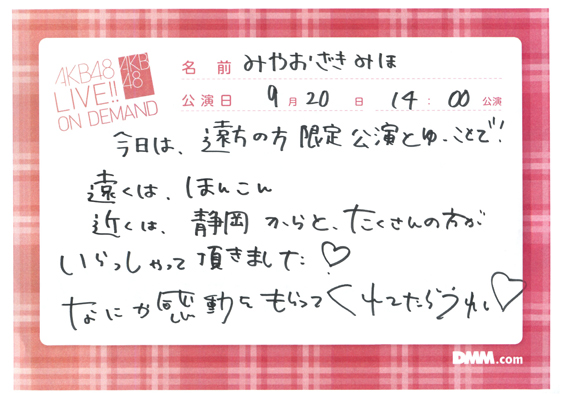 AKB48
LIVE!!
ON DEMAND
AKB
48
名 前 みやおざきみほ
公演日 9月20日 14:00公演
今日は、遠方の方限定公演とゆーことで!
遠くは、ほんこん
近くは、静岡からと、たくさんの方が
いらっしゃって頂きました♡
なにか感動をもらってくれてたらうれし♡
DMM.com